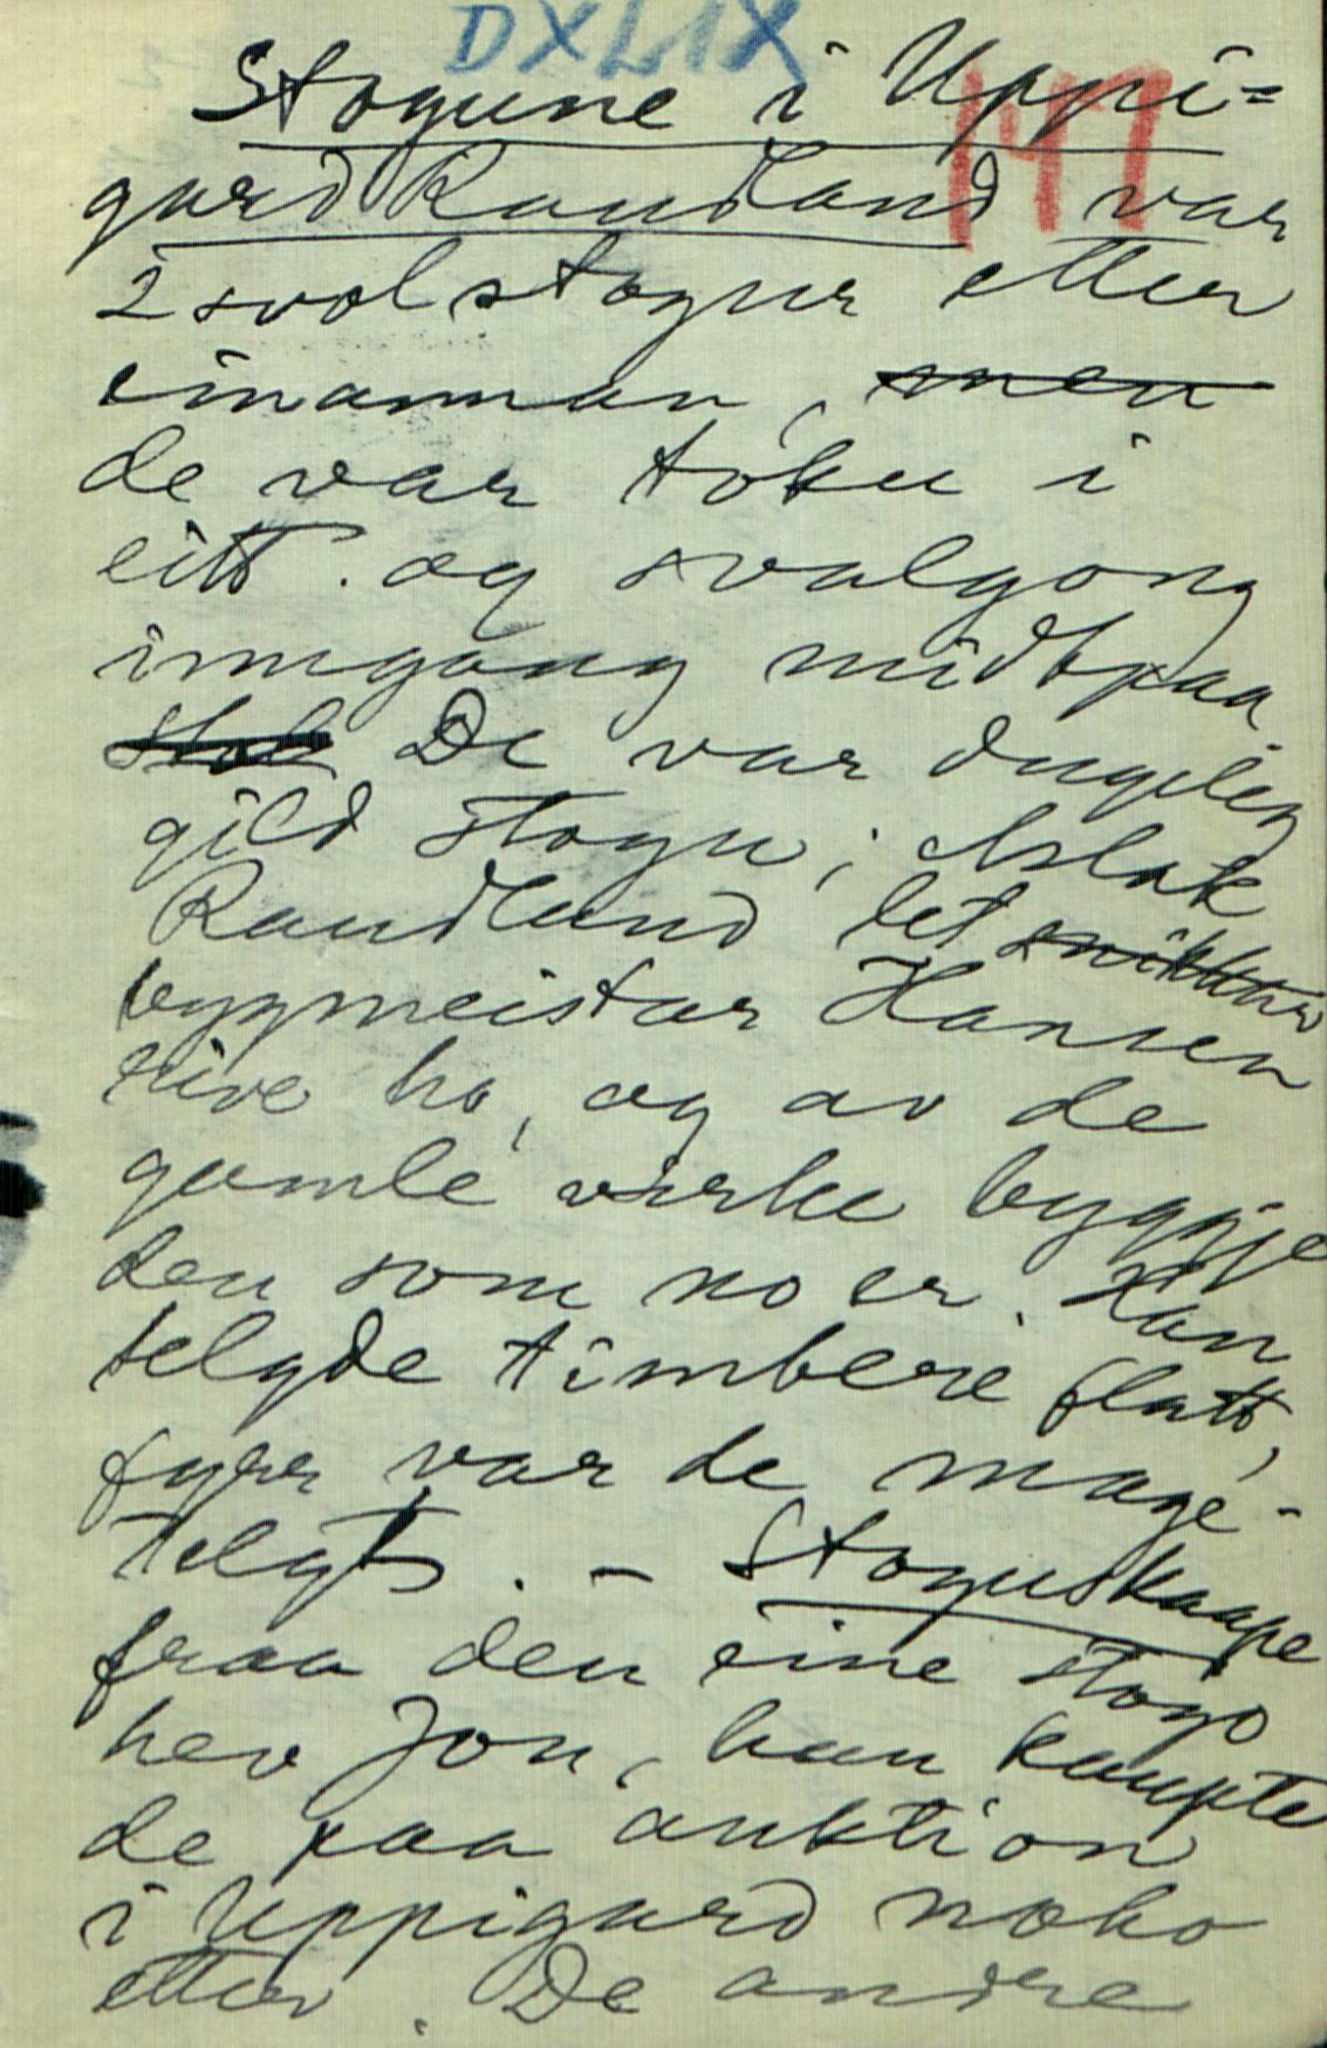 DXLIX
147
Stogune i Uppi=
gard Raudland var
2 svolstogur etter
einannan, men
de var tóku i
eitt. og svalgong
inngang midtpaa.
De var dugeleg
gild stogu; Aslak
Raudland let snikkar
bygmeistar Hansen
rive ho, og av de
gamle virke byggje
den som no er. Han
telgde timbere flatt,
fyrr var de mage-
telgt. - Stoguskaape
fraa den eine stogo
hev Jon, han kaupte
de paa auktion
i Uppigard noko
etter. De andre